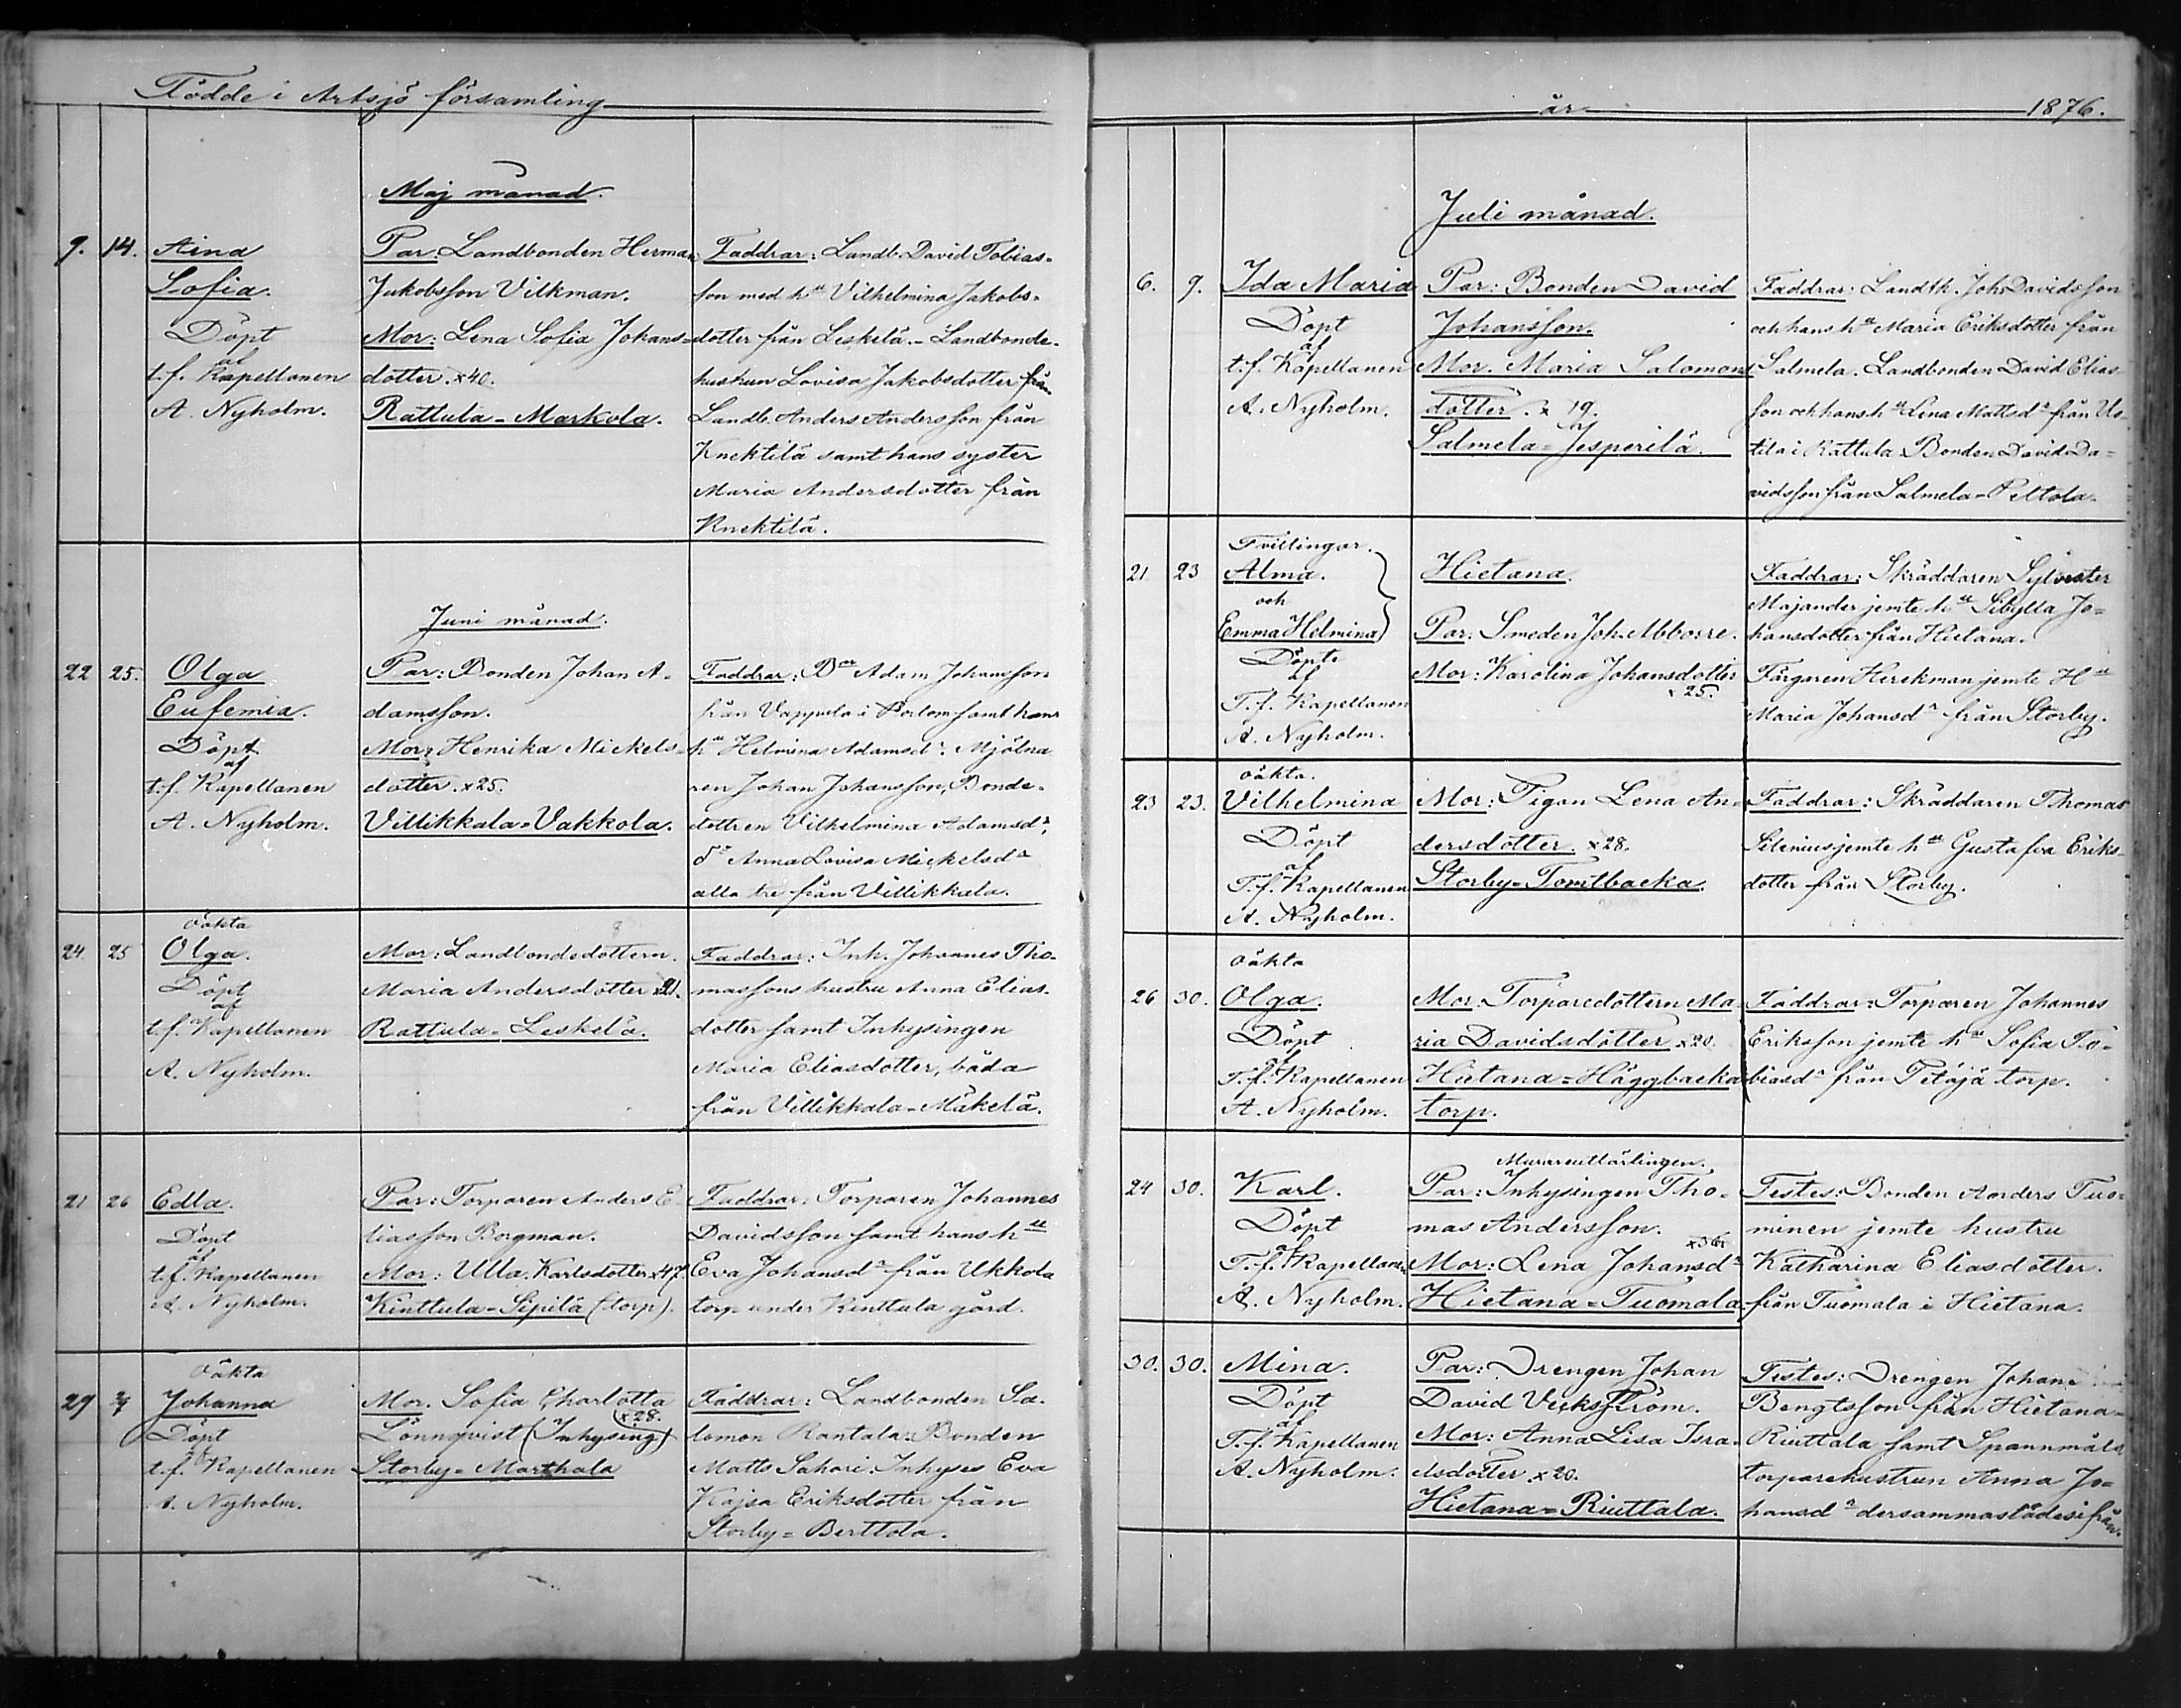 Födde i Artsjö församling
Maj månad.
9. 14. Aina
Sofia.
Döpt
af
t.f. Kapellanen
A. Nyholm.
Par: Landbonden Herman
Jakobsson Vilkman.
Mor: Lena Sofia Johans-
dotter. x40.
Rattula-Markola.
Faddrar: Landb. David Tobias-
son med hu Vilhelmina Jakobs-
dotter från Leskelä.- Landbonde-
hustrun Lovisa Jakobsdotter från
Landb. Anders Andersson från
Knektilä samt hans syster
Maria Andersdotter från
Knektilä.
Juni månad.
22 25. Olga
Eufemia.
Döpt
af
t.f. Kapellanen
A. Nyholm.
Par: Bonden Johan A-
damsson.
Mor: Henrika Mickels-
dotter. x25.
Villikkala-Vakkola.
Faddrar: Bn Adam Johansson
från Vappula i Porlom samt hans
hu Helmina Adamsdr. Mjölna
ren Johan Johansson, Bonde-
dottren Vilhelmina Adamsdr,
do Anna Lovisa Mickelsdr
alla tre från Villikkala.
24. 25 oäkta
Olga.
Döpt
af
t.f. Kapellanen
A. Nyholm.
Mor: Landbondedottern.
Maria Andersdotter x21.
Rattula-Leskelä.
Faddrar: Inh. Johannes Tho-
massons hustru Anna Elias-
dotter samt Inhysingen
Maria Eliasdotter, båda
från Villikkala-Mäkelä.
21 26 Edla.
Döpt
af
t.f. Kapellanen
A. Nyholm.
Par: Torparen Anders E-
liasson Borgman.
Mor: Ulla Karlsdotter x47.
Kinttula-Sipilä (torp).
Faddrar: Torparen Johannes
Davidsson samt hans hu
Eva Johansdr från Ukkola
torp under Kinttula gård.
29 2/7 Oäkta
Johanna
Döpt
af
t.f. Kapellanen
A. Nyholm.
Mor. Sofia Charlotta
x28.
Lönnqvist (Inhysing)
Storby-Marthala
Faddrar: Landbonden Sa-
lomon Rantala. Bonden
Matts Sahari. Inhyses Eva
Kajsa Eriksdotter från
Storby-Berttola.
år 1876.
Juli månad.
6. 9. Ida Maria
Döpt
af
t.f. Kapellanen
A. Nyholm.
Par: Bonden David
Johansson.
Mor. Maria Salomons
dotter. x 19.
Salmela-Jesperilä.
Faddrar: Landtb. Joh. Davidsson
och hans hu Maria Eriksdotter från
Salmela. Landbonden David Elias-
son och hans hu Lena Mattsdr från Us-
tila i Rattula. Bonden David Da-
vidsson från Salmela-Peltola.
21. 23 Tvillingar.
Alma.
och
Emma Helmina
Döpte
af
T.f. Kapellanen
A. Nyholm.
Hietana.
Par. Smeden Joh. Abborre.
Mor: Karolina Johansdotter
x25.
Faddrar: Skräddaren Sylvester
Majander jemte hu Sibylla Jo-
hansdotter från Hietana.
Färgaren Herckman jemte Hu
Maria Johansdr från Storby.
23 23. oäkta.
Vilhelmina
Döpt
af
T.f. Kapellanen
A. Nyholm.
Mor: Pigan Lena An-
dersdotter. x28.
Storby-Tomtbacka.
Faddrar: Skräddaren Thomas
Silenius jemte hu Gustafva Eriks-
dotter från Storby.
26 30. oäkta
Olga.
Döpt
af
T.f. Kapellanen
A. Nyholm.
Mor. Torparedottern Ma-
ria Davidsdotter x20.
Hietana-Häggbacka
torp.
Faddrar: Torparen Johannes
Eriksson jemte hu Sofia To-
biasdr från Petäjä torp.
24 30. Karl.
Döpt
af
T.f. Kapellanen
A. Nyholm.
Murareutlärlingen.
Par: Inhysingen Tho-
mas Andersson.
x36.
Mor: Lena Johansdr
Hietana-Tuomala.
Testes: Bonden Anders Tuo-
minen jemte hustru
Katharina Eliasdotter.
från Tuomala i Hietana.
30. 30. Mina.
Döpt
af
T.f. Kapellanen
A. Nyholm.
Par: Drengen Johan
David Vickström.
Mor: Anna Lisa Isra-
elsdotter. x20.
Hietana-Riuttala.
Testes: Drengen Johan
Bengtsson från Hietana-
Riuttala samt Spannmåls
torparehustrun Anna Jo-
hansdr dersammastädesifrån.